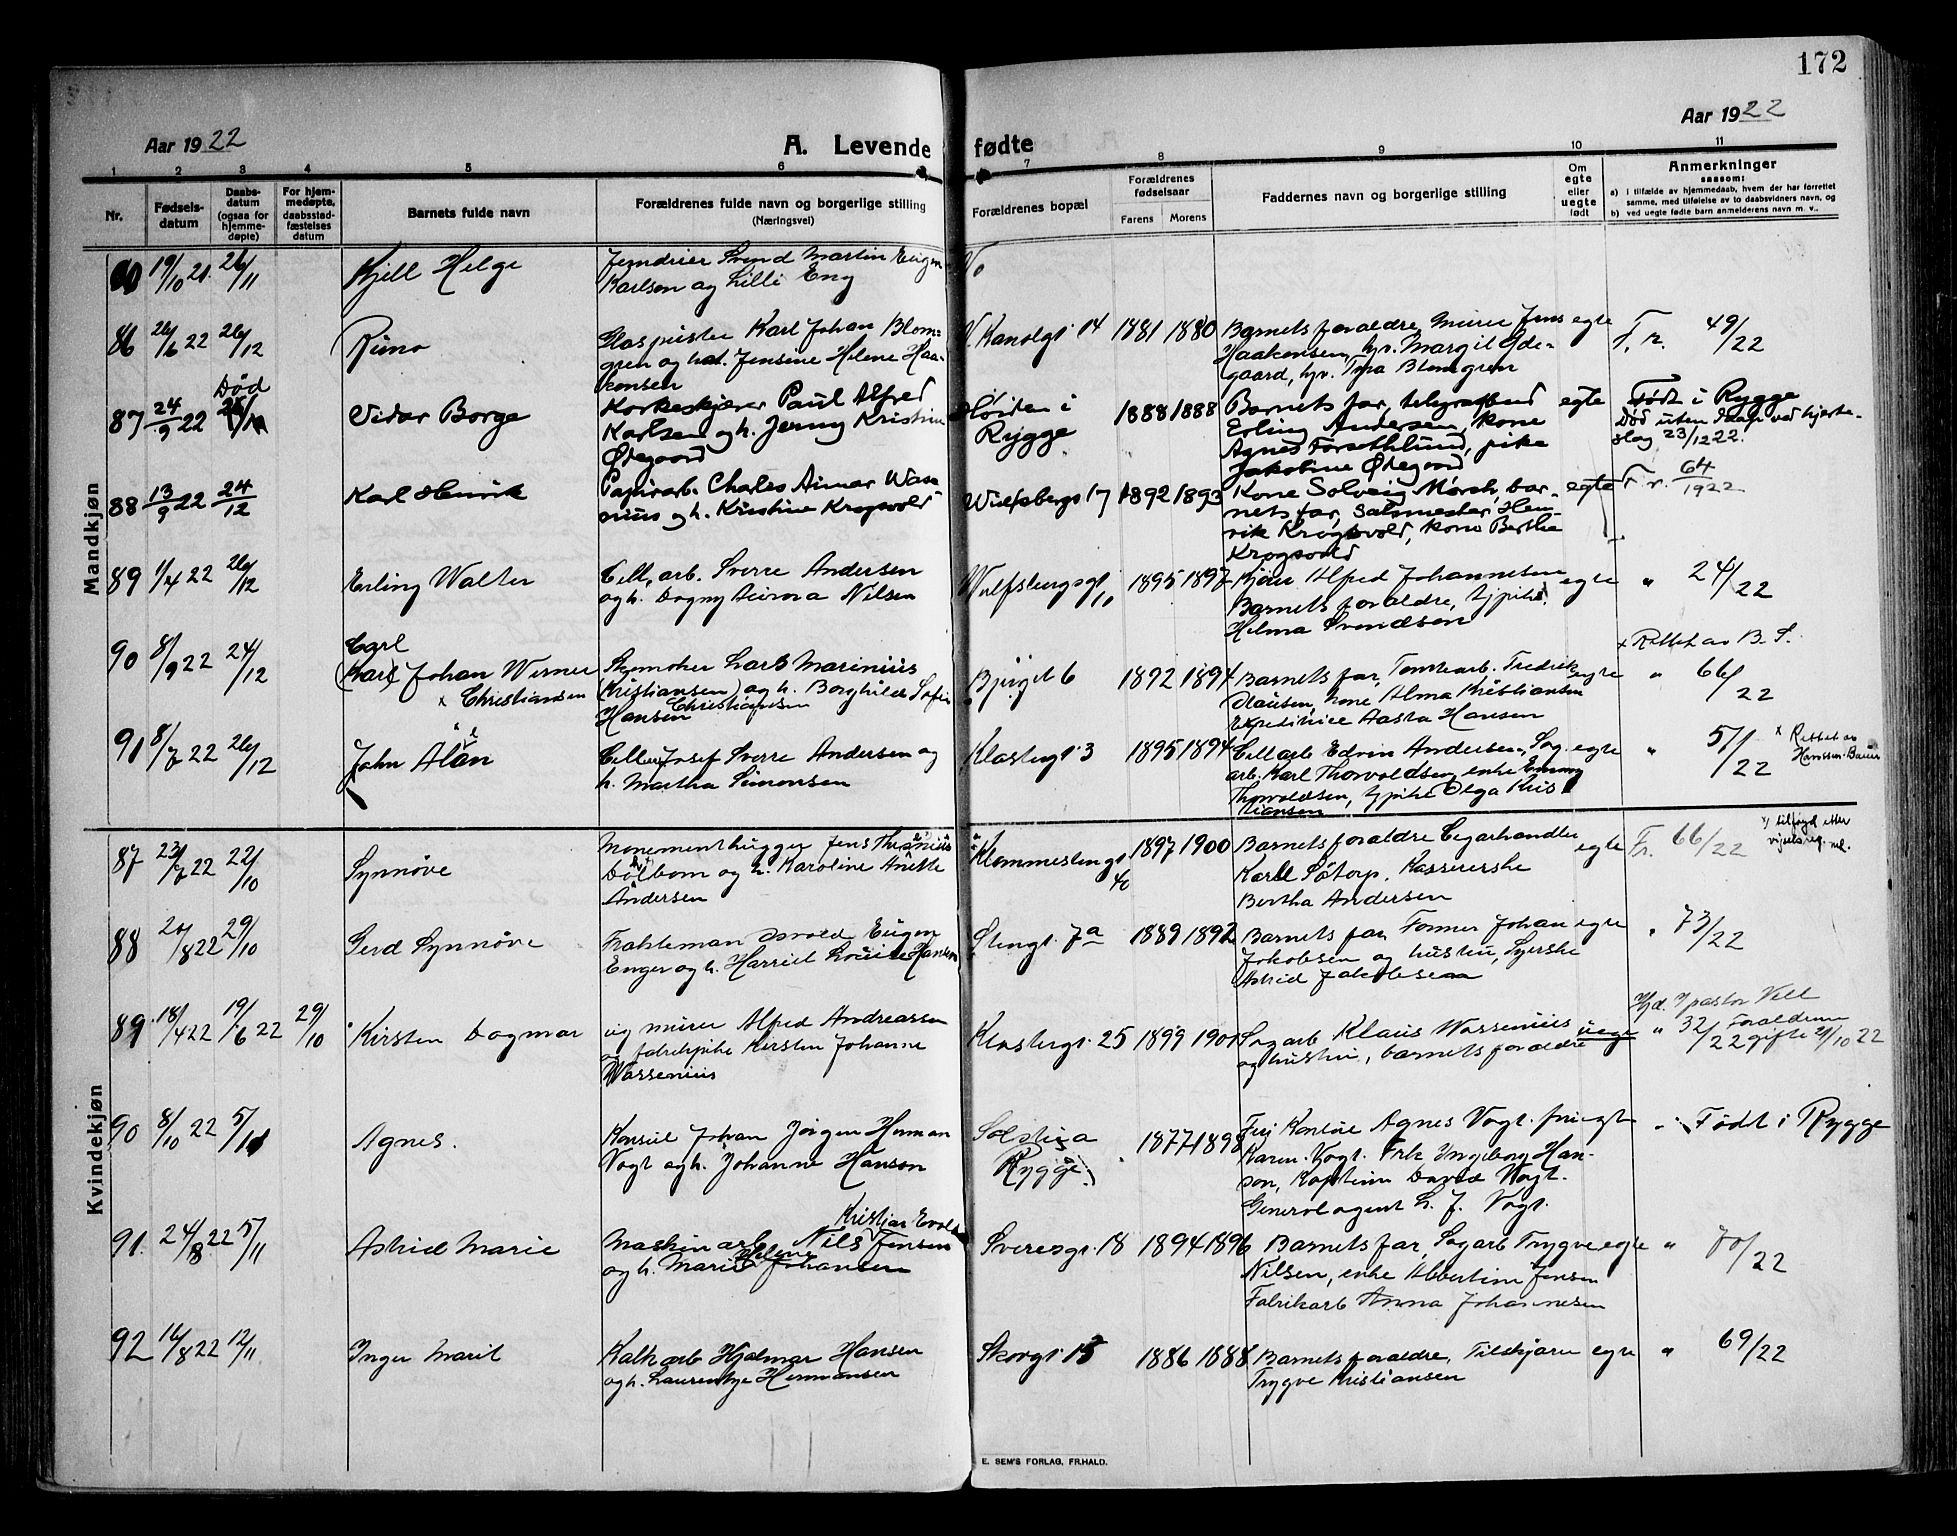 172
Aar 1922
A. Levende
fødte
Aar 1922
1 2 3 4 5 6 7 8 9 10 11
Nr.
Fødsels-
datum
Daabs-
datum
(ogsaa for
hjemme-
døpte)
For hjem-
medøpte,
daabsstad-
fæstelses
datum
Barnets fulde navn
Forældrenes fulde navn og borgerlige stilling
(Næringsvei)
Forældrenes bopæl
Forældrenes
fødselsaar
Farens
Morens
Faddernes navn og borgerlige stilling
Om
egte
eller
uegte
født
Anmerkninger
saasom:
a) i tilfælde av hjemmedaab, hvem der har forrettet
samme, med tilføielse av to daabsvidners navn, og
b) ved uegte fødte barn anmelderens navn m. v..
Mandkjøn
19/10 21 26/11 Kjell Helge
Svend Martin Eugen
Karlsen og Lilli Eny
86 26/6 22 26/12 Runo
Glaspuster Karl Johan Blom-
gren og hst. Jensine Helene Haa-
konsen
V. Kanalgt 14 1881 1880
Barnets forældre, Murer Jens
Haakonsen, hr. Margit Øde-
gaard, hr. Tyra Blomgren
egte
F. r. 49/22
87 24/9 22 Død
Vidar Borge
Korkeskjærer Paul Alfred
Karlsen og h. Jenny Kristine
Ødegaard
Høiden i
Rygge
1888 1888
Barnets far, telegrafbud
Erling Andersen, kone
Agnes Forsthlund, pike
Jakobine Ødegaard
egte
Født i Rygge
Død uten Daap ved hjerte-
slag 23/12 22.
88 13/9 22 24/12 Karl Henrik
Papirarb. Charles Aimar Wasse-
nius og h. Kristine Krogsvold
Wulfsbergs 17 1892 1893
Kone Solveig Mørch, bar-
nets far, Salsmester Hen-
rik Krogsvold, kone Berthe
Krogsvold
egte
F. r. 64/1922
89 1/4 22 26/12 Erling Walter
Cell. arb. Sverre Andersen
og h. Dagny Aurora Nilsen
Wulfsbergsgt 10 1895 1897
Kjører Alfred Johannesen
Barnets forældre, tj.pike
Helma Svendsen
egte
" 24/22
90 8/9 22 24/12
Carl
(Karl) Johan Werner
x Christiansen
Skomaker Lars Marinius
(Kristiansen) og h. Borghilde Sofie
Hansen Christiansen
Bjergt 6 1892 1894
Barnets far, Tomtearb. Fredrik
Olausen, kone Alma Kristiansen
Expeditrice Aasta Hansen
egte
x Rettet av B. S.
" 66/22
91 8/7 22 26/12 John Alan
Cellarb Josef Sverre Andersen og
h. Martha Simonsen
Klostergt 3 1895 1894
Cellarb Edvin Andersen, Sag-
arb. Karl Thorvaldsen, enke Emmy
Thorvaldsen, tj.pike Olga Kris
tiansen
egte
" 57/22 x Rettet av
Hanssen-Bauer
Kvindekjøn
87 23/7 22 22/10 Synnøve
Monumenthugger Jens
Dølbom og h. Karoline Anette
Andersen
Klommestengt
40
1897 1900
Barnets forældre Cigarhandler
Karll Søtorp, Kassererske
Bertha Andersen
egte
Fr. 66/22
x) tilføyd etter
vigselsreg.
88 20/8 22 29/10 Gerd Synnøve
Fragteman Osvald Eugen
Enger og h. Harriet Louise Hansen
Stengt. 7a 1889 1892
Barnets far, Former Johan
Jakobsen og hustru, Syerske
Astrid Jakobsen
egte
" 73/22
89 18/4 22 19/6 22 29/10 Kirsten Dagmar
ug murer Alfred Andreassen
og fabrikpike Kirsten Johanne
Wassenius
Klostergt. 25 1899 1901
Sagarb Klaus Wassenius
og hustru, barnets forældre
uegte
Hjd. v/ pastor Vell
" 32/22 Forældrene
gifte 21/10 22
90 8/10 22 5/11 Agnes.
Konsul Johan Jörgen Herman
Vogt og h. Johanne Hanson
Solstua
Rygge)
1877 1898
Fru Konsul Agnes Vogt, fru
Karen Vogt. Frk Ingeborg Han-
son, Kaptein David Vogt.
Generalagent L. J. Vogt.
egte
" Født i Rygge
91. 24/8 22 5/11 Astrid Marie
Kristian Evald
Maskinarb Nils Jensen
og h. Marie Helene Johansen
Sverresgt. 18 1894 1896
Barnets far, Sagarb Trygve
Nilsen, enke Albertine Jensen
Fabrikarb Anna Johannesen
egte
" 70/22
92 16/8 22 12/11 Inger Marit
Kalkarb Hjalmar Hansen
og h. Laurentze Hermansen
Skogt 15 1886 1888
Barnets forældre, Tilskjærer
Trygve Kristiansen
egte
" 69/22
E. SEM'S FORLAG, FR.HALD.